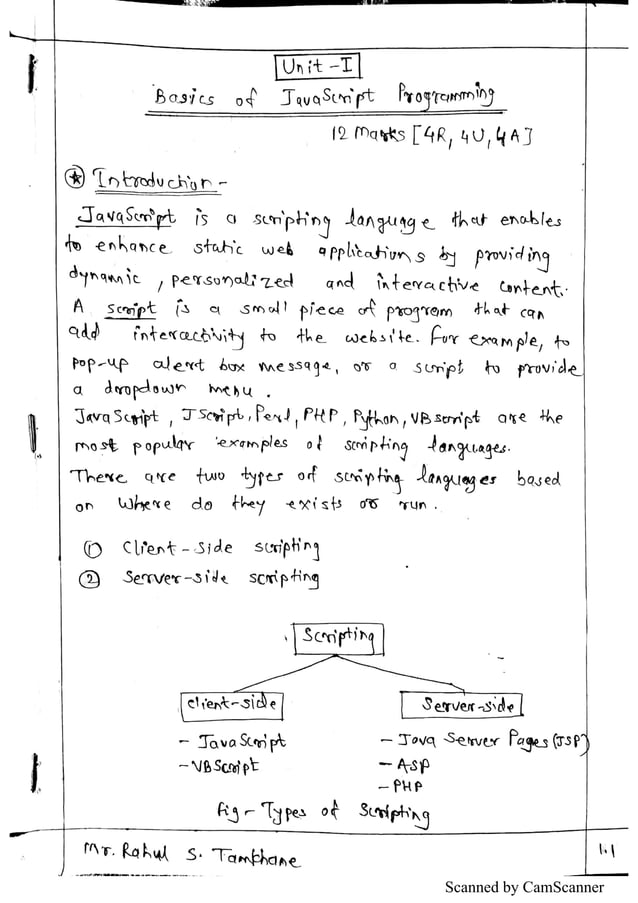 Unit - I
Basics of JavaScript Programming
12 Marks [4R, 4U, 4A]
Introduction -
JavaScript is a scripting language that enables
to enhance static web applications by providing
dynamic, personalized and interactive content.
A script is a small piece of program that can
add interactivity to the website. For example, to
pop-up alert box message, or a script to provide
a dropdown menu.
JavaScript, JScript, Perl, PHP, Python, VBscript are the
most popular examples of scripting languages.
There are two types of scripting languages based
on where do they exists or run.
① Client-side scripting
② Server-side scripting
Scripting
Client-side Server-side
- JavaScript - Java Server Pages (JSP)
- VBScript - ASP
- PHP
Fig - Types of Scripting
Mr. Rahul S. Tamkhane 1.1
Scanned by CamScanner